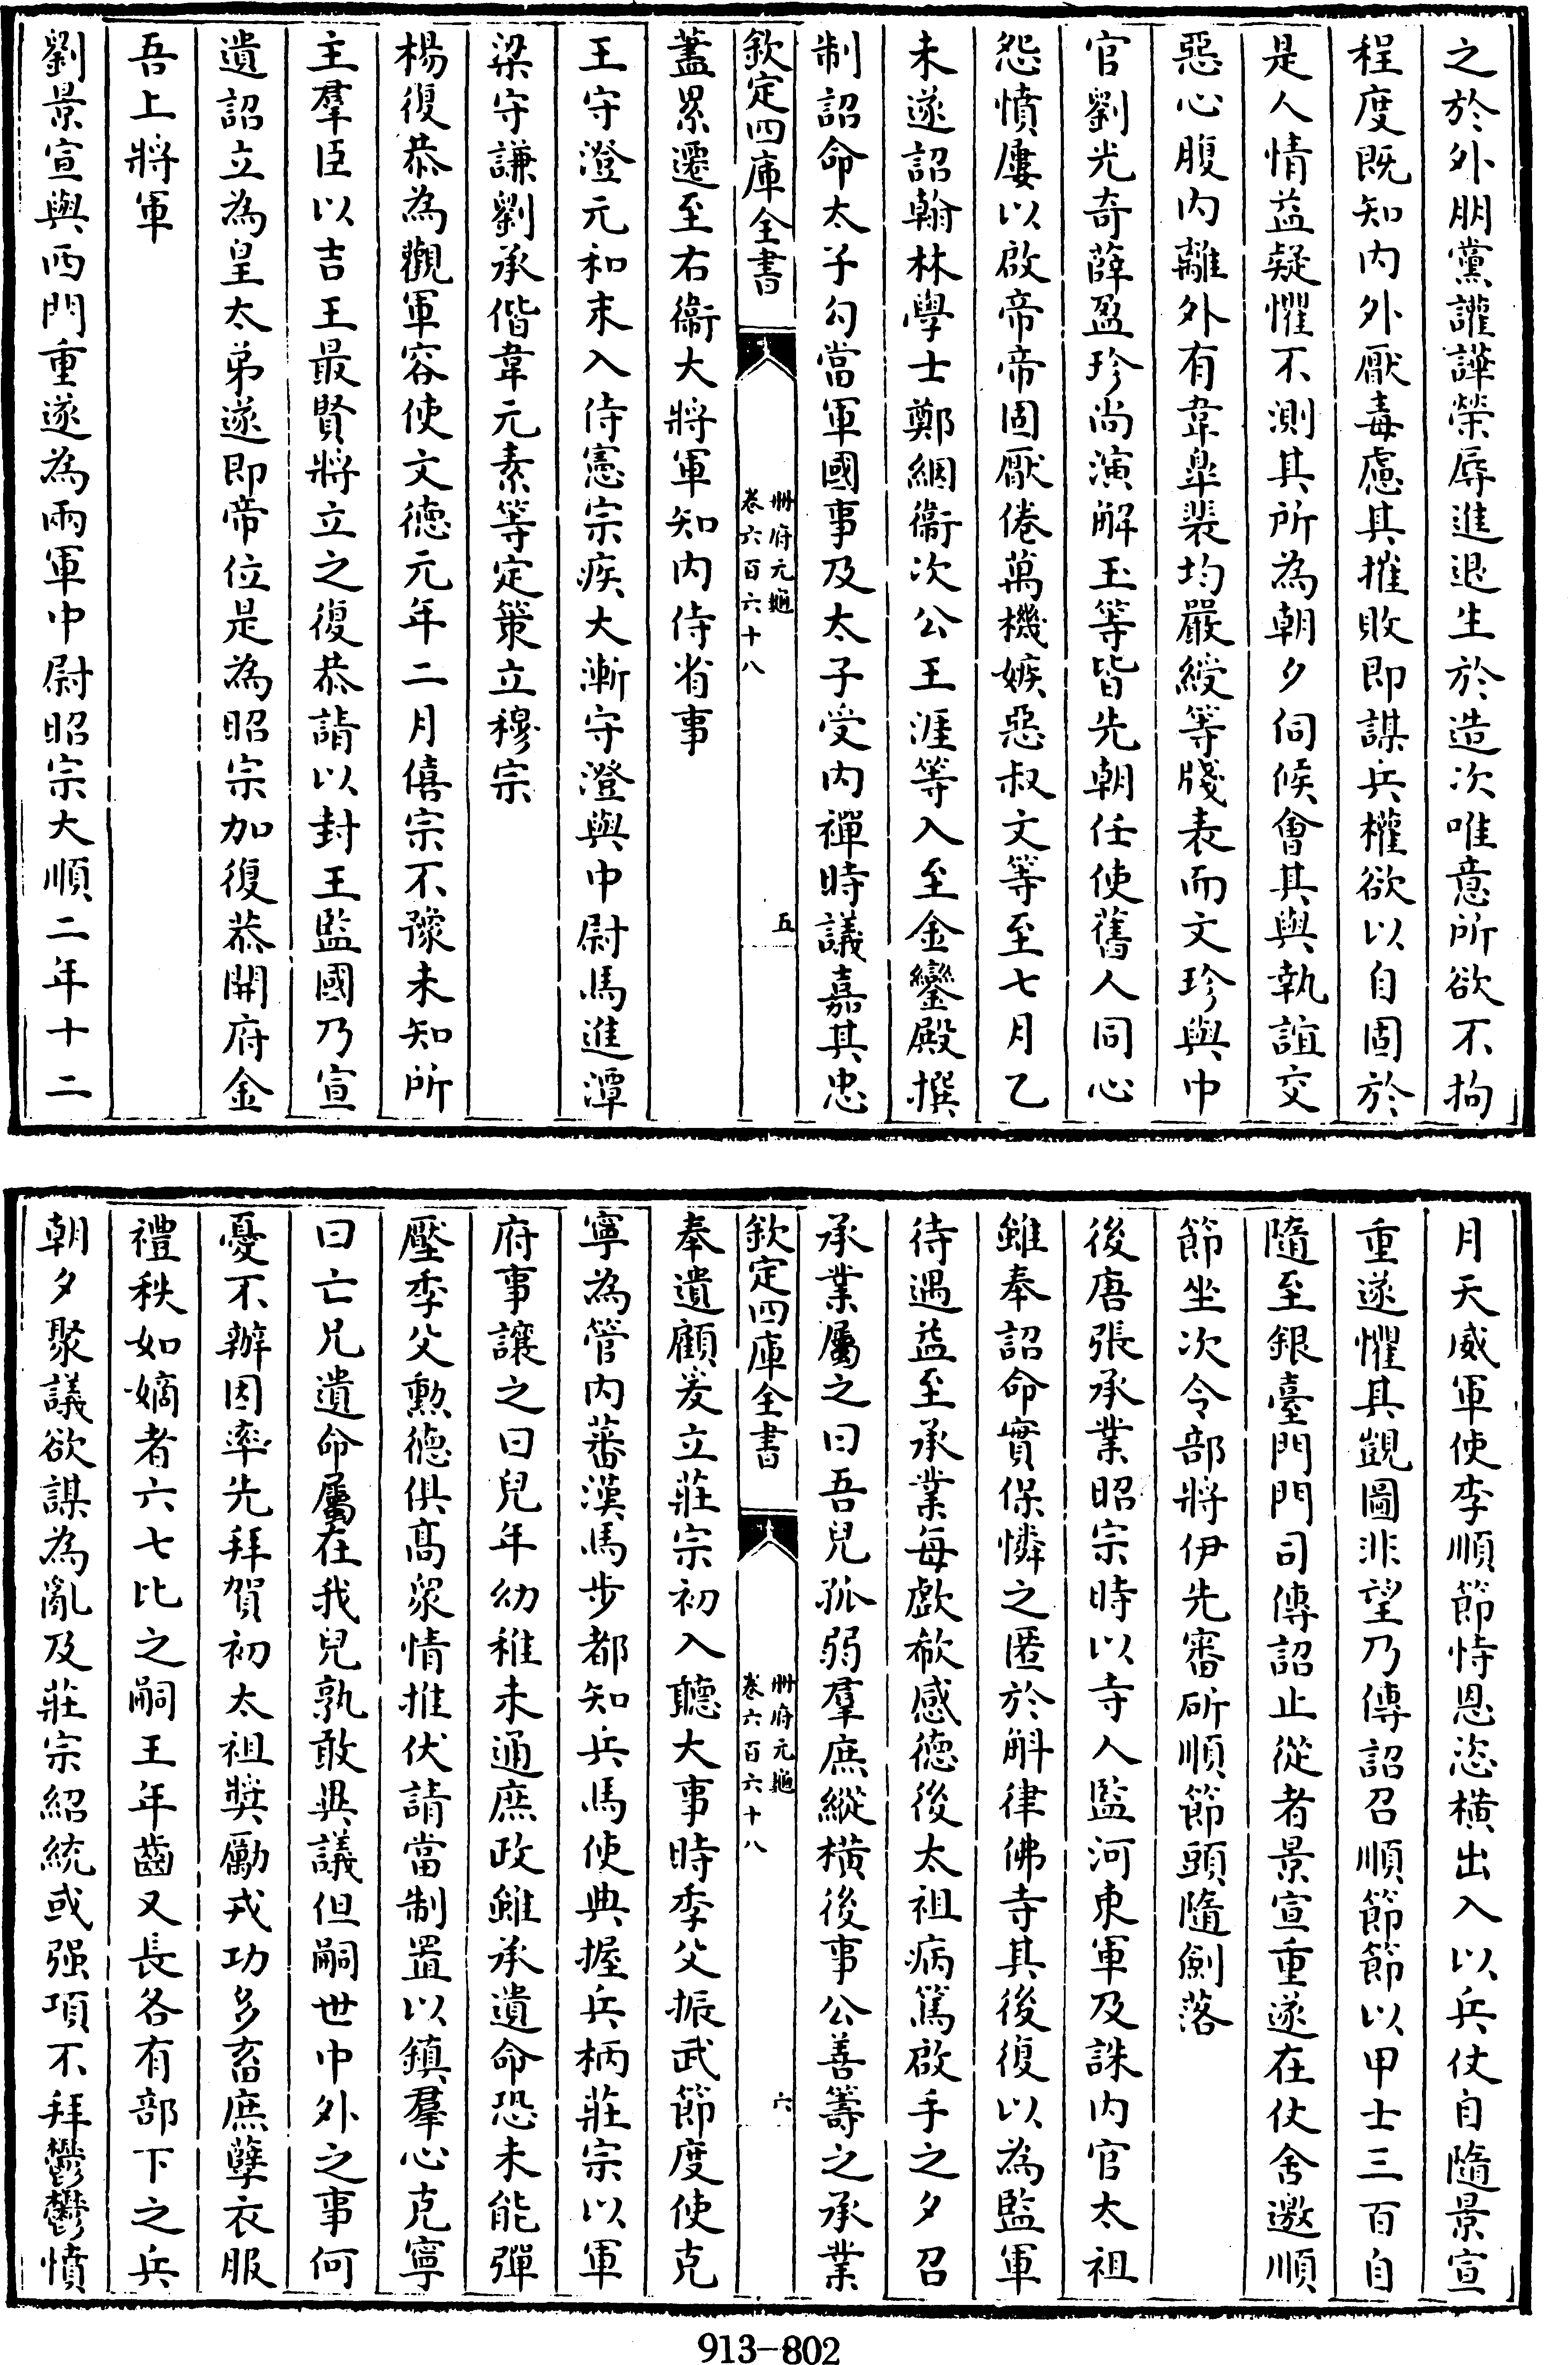 之於外朋黨讙譁榮辱進退生於造次唯意所欲不拘
程度既知内外厭毒慮其摧敗即謀兵權欲以自固於
是人情益疑懼不測其所為朝夕伺候會其與執誼交
惡心腹内離外有韋臯裴均嚴綬等牋表而文珍與中
官劉光奇薛盈珍尚演解玉等皆先朝任使舊人同心
怨憤屢以啟帝帝固厭倦萬機嫉惡叔文等至七月乙
未遂詔翰林學士鄭絪衞次公王涯等入至金鑾殿撰
制詔命太子勾當軍國事及太子受内禪時議嘉其忠
欽定四庫全書
册府元龜
卷六百六十八
五
藎累遷至右衞大將軍知内侍省事
王守澄元和末入侍憲宗疾大漸守澄與中尉馬進潭
梁守謙劉承偕韋元素等定策立穆宗
楊復恭為觀軍容使文德元年二月僖宗不豫未知所
主羣臣以吉王最賢將立之復恭請以封王監國乃宣
遺詔立為皇太弟遂即帝位是為昭宗加復恭開府金
吾上將軍
劉景宣與西門重遂為兩軍中尉昭宗大順二年十二
月天威軍使李順節恃恩恣横出入以兵仗自隨景宣
重遂懼其覬圖非望乃傳詔召順節節以甲士三百自
隨至銀臺門門司傳詔止從者景宣重遂在仗舍邀順
節坐次令部將伊先審斫順節頭隨劍落
後唐張承業昭宗時以寺人監河東軍及誅内官太祖
雖奉詔命實保憐之匿於斛律佛寺其後復以為監軍
待遇益至承業每歔欷感德後太祖病篤啟手之夕召
承業屬之曰吾兒孤弱羣庶縱横後事公善籌之承業
欽定四庫全書
册府元龜
卷六百六十八
六
奉遺顧爰立莊宗初入聽大事時季父振武節度使克
寧為管内蕃漢馬步都知兵馬使典握兵柄莊宗以軍
府事讓之曰兒年幼稚未通庶政雖承遺命恐未能彈
壓季父勲德俱髙衆情推伏請當制置以鎮羣心克寧
曰亡兄遺命屬在我兒孰敢異議但嗣世中外之事何
憂不辦因率先拜賀初太祖奬勵戎功多畜庶孽衣服
禮秩如嫡者六七比之嗣王年齒又長各有部下之兵
朝夕聚議欲謀為亂及莊宗紹統或强項不拜鬱鬱憤
913-802